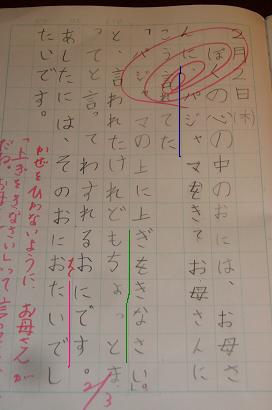 2月2日(木)
ぼくの心の中のおには、お母さ
んに、パジャマをきて お母さんに
こう言れた
「パジャマの上に上ぎをきなさい。」
と、言われたけれどもちょっとま
ってと言ってわすれるおにです。
あしたには、そのおにおたいでし
たいです。
2/3
かぜをひかないように お母さんが
「上ぎをきなさい」って言って
だね。